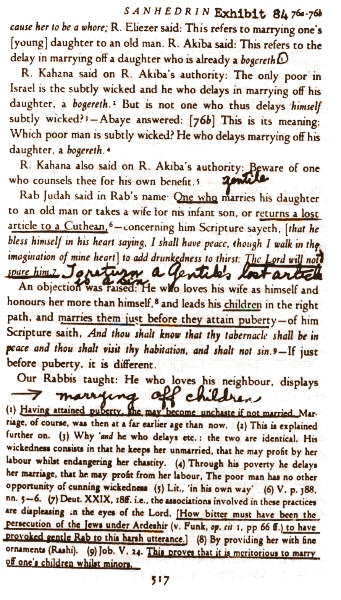 SANHEDRIN Exhibit 84 76a-76b
cause her to be a whore; R. Eliezer said: This refers to marrying one's
[young] daughter to an old man. R. Akiba said: This refers to the
delay in marrying off a daughter who is already a bogereth①
R. Kahana said on R. Akiba's authority: The only poor in
Israel is the subtly wicked and he who delays in marrying off his
daughter, a bogereth.² But is not one who thus delays himself
subtly wicked?³—Abaye answered: [76b] This is its meaning:
Which poor man is subtly wicked? He who delays marrying off his
daughter, a bogereth.⁴
R. Kahana also said on R. Akiba's authority: Beware of one
who counsels thee for his own benefit.⁵ gentile
Rab Judah said in Rab's name: One who marries his daughter
to an old man or takes a wife for his infant son, or returns a lost
article to a Cuthean,⁶—concerning him Scripture sayeth, [that he
bless himself in his heart saying, I shall have peace, though I walk in the
imagination of mine heart] to add drunkedness to thirst: The Lord will not
spare him.⁷ To return a Gentile's lost article
is a sin
An objection was raised: He who loves his wife as himself and
honours her more than himself,⁸ and leads his children in the right
path, and marries them just before they attain puberty—of him
Scripture saith, And thou shalt know that thy tabernacle shall be in
peace and thou shalt visit thy habitation, and shalt not sin.⁹—If just
before puberty, it is different.
Our Rabbis taught: He who loves his neighbour, displays
→ marrying off children
(1) Having attained puberty, she may become unchaste if not married. Mar-
riage, of course, was then at a far earlier age than now. (2) This is explained
further on. (3) Why 'and he who delays etc.: the two are identical. His
wickedness consists in that he keeps her unmarried, that he may profit by her
labour whilst endangering her chastity. (4) Through his poverty he delays
her marriage, that he may profit from her labour. The poor man has no other
opportunity of cunning wickedness (5) Lit., 'in his own way' (6) V. p. 388,
nn. 5-6. (7) Deut. XXIX, 18ff. i.e., the associations involved in these practices
are displeasing in the eyes of the Lord. [How bitter must have been the
persecution of the Jews under Ardeshir (v. Funk, op. cit 1, pp 66 ff.) to have
provoked gentle Rab to this harsh utterance.] (8) By providing her with fine
ornaments (Rashi). (9) Job. V. 24. This proves that it is meritorious to marry
off one's children whilst minors.
517